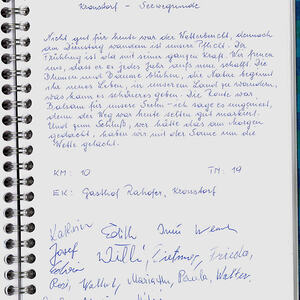 Kronsdorf - Seewegrunde
Nicht gut für heute war der Wetterbericht, dennoch
am Dienstag wandern ist unsere Pflicht. Der
Frühling ist da mit seiner ganzen Kraft. Wir freuen
uns, dass er es jedes Jahr aufs neu schafft. Die
Blumen und Bäume blühen, die Natur beginnt
ihr neues Leben, in unserem Land zu wandern,
was kann es schöneres geben. Die Route war
Balsam für unsere Seelen - ich sage es ungeniert,
denn der Weg war heute selten gut markiert.
Und zum Schluß, wer hätte dies am Morgen
gedacht, haben wir mit der Sonne um die
Wette gelacht.
KM: 10 TN: 19
EK: Gasthof Rahofer, Kronsdorf
Kathrin Edith
Josef Willi, Dietmar, Frieda,
Rosi, Waltraud, Margarethe, Paula, Walter